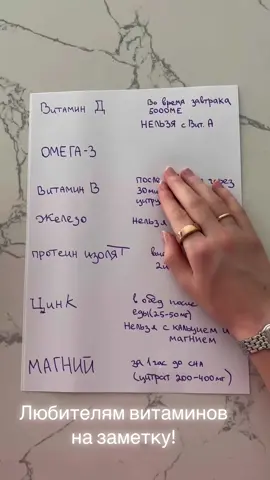 Витамин Д
Во время завтрака
5000МЕ
НЕЛЬЗЯ с Вит. А
ОМЕГА-3
Витамин В
после
30ми
цитру
Железо
нельзя
протеин изолят
Цинк
в обед после
еды (25-50мг)
Нельзя с кальцием и
магнием
МАГНИЙ
за 1 час до сна
(цитрат 200-400мг)
Любителям витаминов
на заметку!